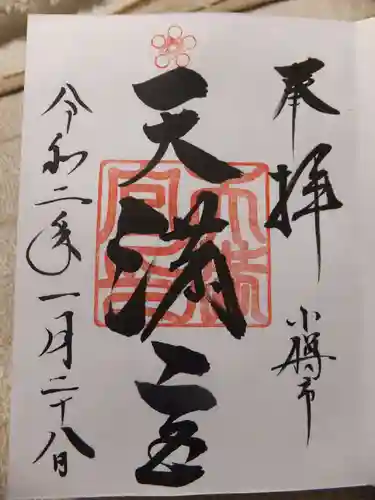 奉拝
小樽市
天満宮
令和二年一月二十八日